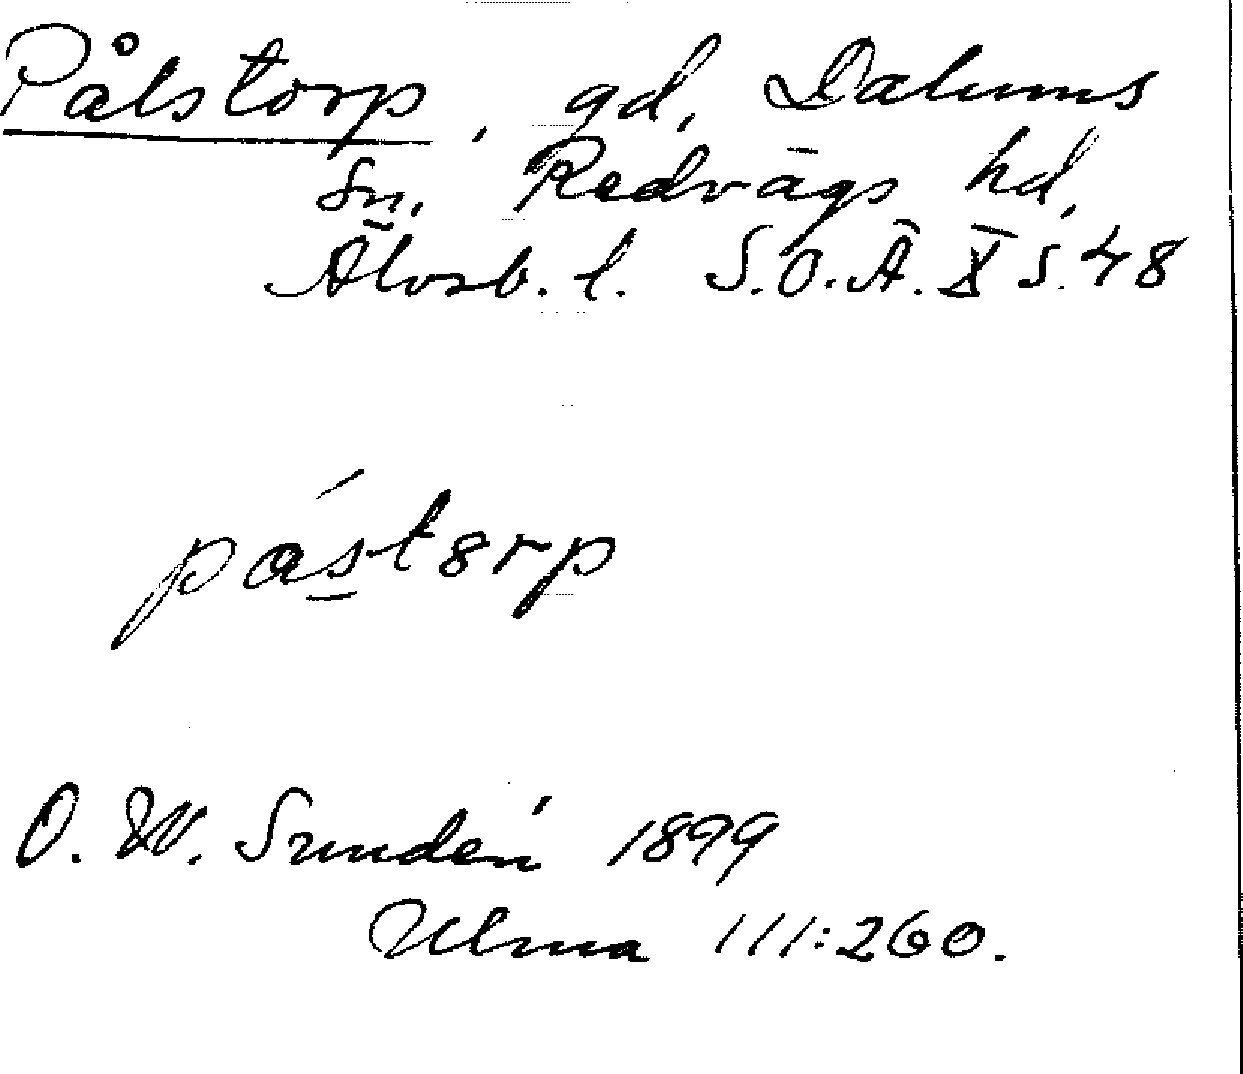 Pålstorp, gd, Dalums
sn, Redvägs hd,
Älvsb. l. S.O.Ä. X s. 48
pástorp
O. W. Sundén 1899
Ulma 111:260.